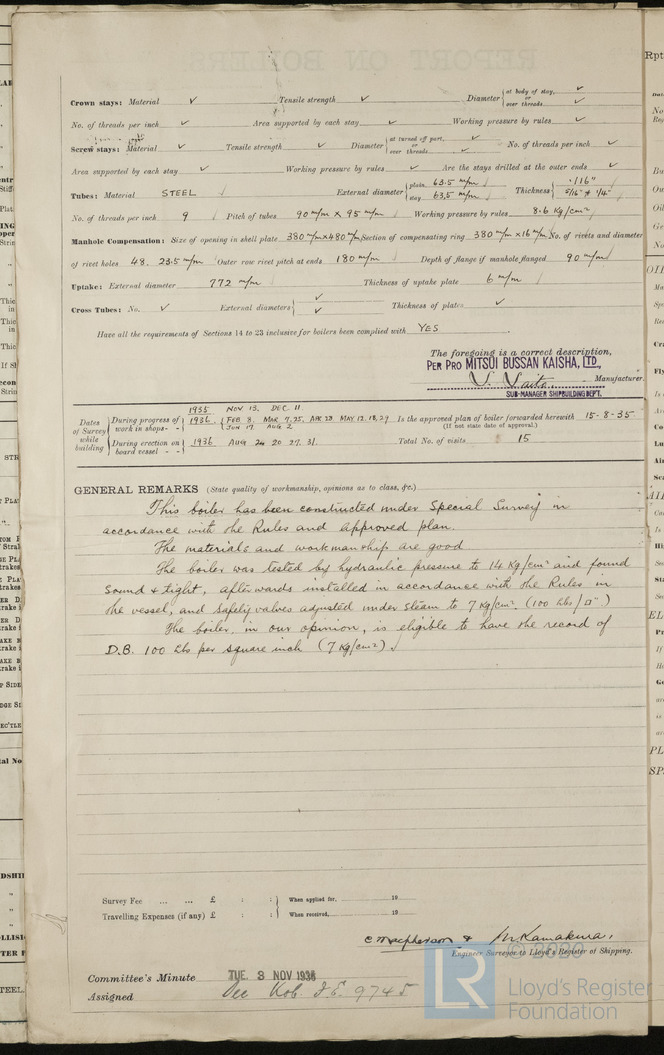 Crown stays: Material ✓ Tensile strength ✓ Diameter { at body of stay, ✓ or over threads ✓
No. of threads per inch ✓ Area supported by each stay ✓ Working pressure by rules ✓
Screw stays: Material ✓ Tensile strength ✓ Diameter { at turned off part, ✓ or over threads ✓ No. of threads per inch ✓
Area supported by each stay ✓ Working pressure by rules ✓ Are the stays drilled at the outer ends ✓
Tubes: Material STEEL External diameter { plain 63.5 m/m stay 63.5 m/m Thickness { 5/16" & 1/4"
No. of threads per inch 9 Pitch of tubes 90 m/m X 95 m/m Working pressure by rules 8.6 Kg/cm²
Manhole Compensation: Size of opening in shell plate 380 m/m x 480 m/m Section of compensating ring 380 m/m x 16 m/m No. of rivets and diameter
of rivet holes 48. 23.5 m/m Outer row rivet pitch at ends 180 m/m Depth of flange if manhole flanged 90 m/m
Uptake: External diameter 772 m/m Thickness of uptake plate 6 m/m
Cross Tubes: No. ✓ External diameters { ✓ ✓ Thickness of plates ✓
Have all the requirements of Sections 14 to 23 inclusive for boilers been complied with YES
The foregoing is a correct description,
PER PRO MITSUI BUSSAN KAISHA, LTD.,
Manufacturer.
SUB-MANAGER SHIPBUILDING DEPT.
Dates of Survey while building
During progress of work in shops - - { 1935 NOV 15. DEC 11. 1936. FEB 8. MAR 7, 25, APR 28 MAY 12, 18, 29 JUN 17. AUG 2 Is the approved plan of boiler forwarded herewith 15-8-35
(If not state date of approval.)
During erection on board vessel - - { 1936 AUG 24 20 27. 31. Total No. of visits 15
GENERAL REMARKS (State quality of workmanship, opinions as to class, &c.)
This boiler has been constructed under Special Survey in
accordance with the Rules and approved plan.
The materials and workmanship are good
The boiler was tested by hydraulic pressure to 14 Kg/cm² and found
sound & tight, afterwards installed in accordance with the Rules in
the vessel, and safety valves adjusted under steam to 7 Kg/cm². (100 lbs/□")
The boiler, in our opinion, is eligible to have the record of
D.B. 100 lbs per square inch (7 Kg/cm²).
Survey Fee ... ... £ : : When applied for, 19
Travelling Expenses (if any) £ : : When received, 19
C Macpherson & M. Kamakura.
Engineer Surveyor to Lloyd's Register of Shipping.
Committee's Minute TUE. 3 NOV 1936
Assigned See Kob. F.E. 9745
© 2020
LR
Lloyd's Register
Foundation